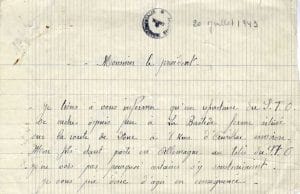 20 juillet 1943
Monsieur le président.
Je tiens à vous informer qu'un réfractaire du S.T.O
se cache depuis peu à La Bastide ferme située
sur la route de à 1 Kme d' environ.
Mon fils étant parti en Allemagne au titre du STO
je ne vois pas pourquoi certains s'y
je vous prie donc d'agir en conséquence.